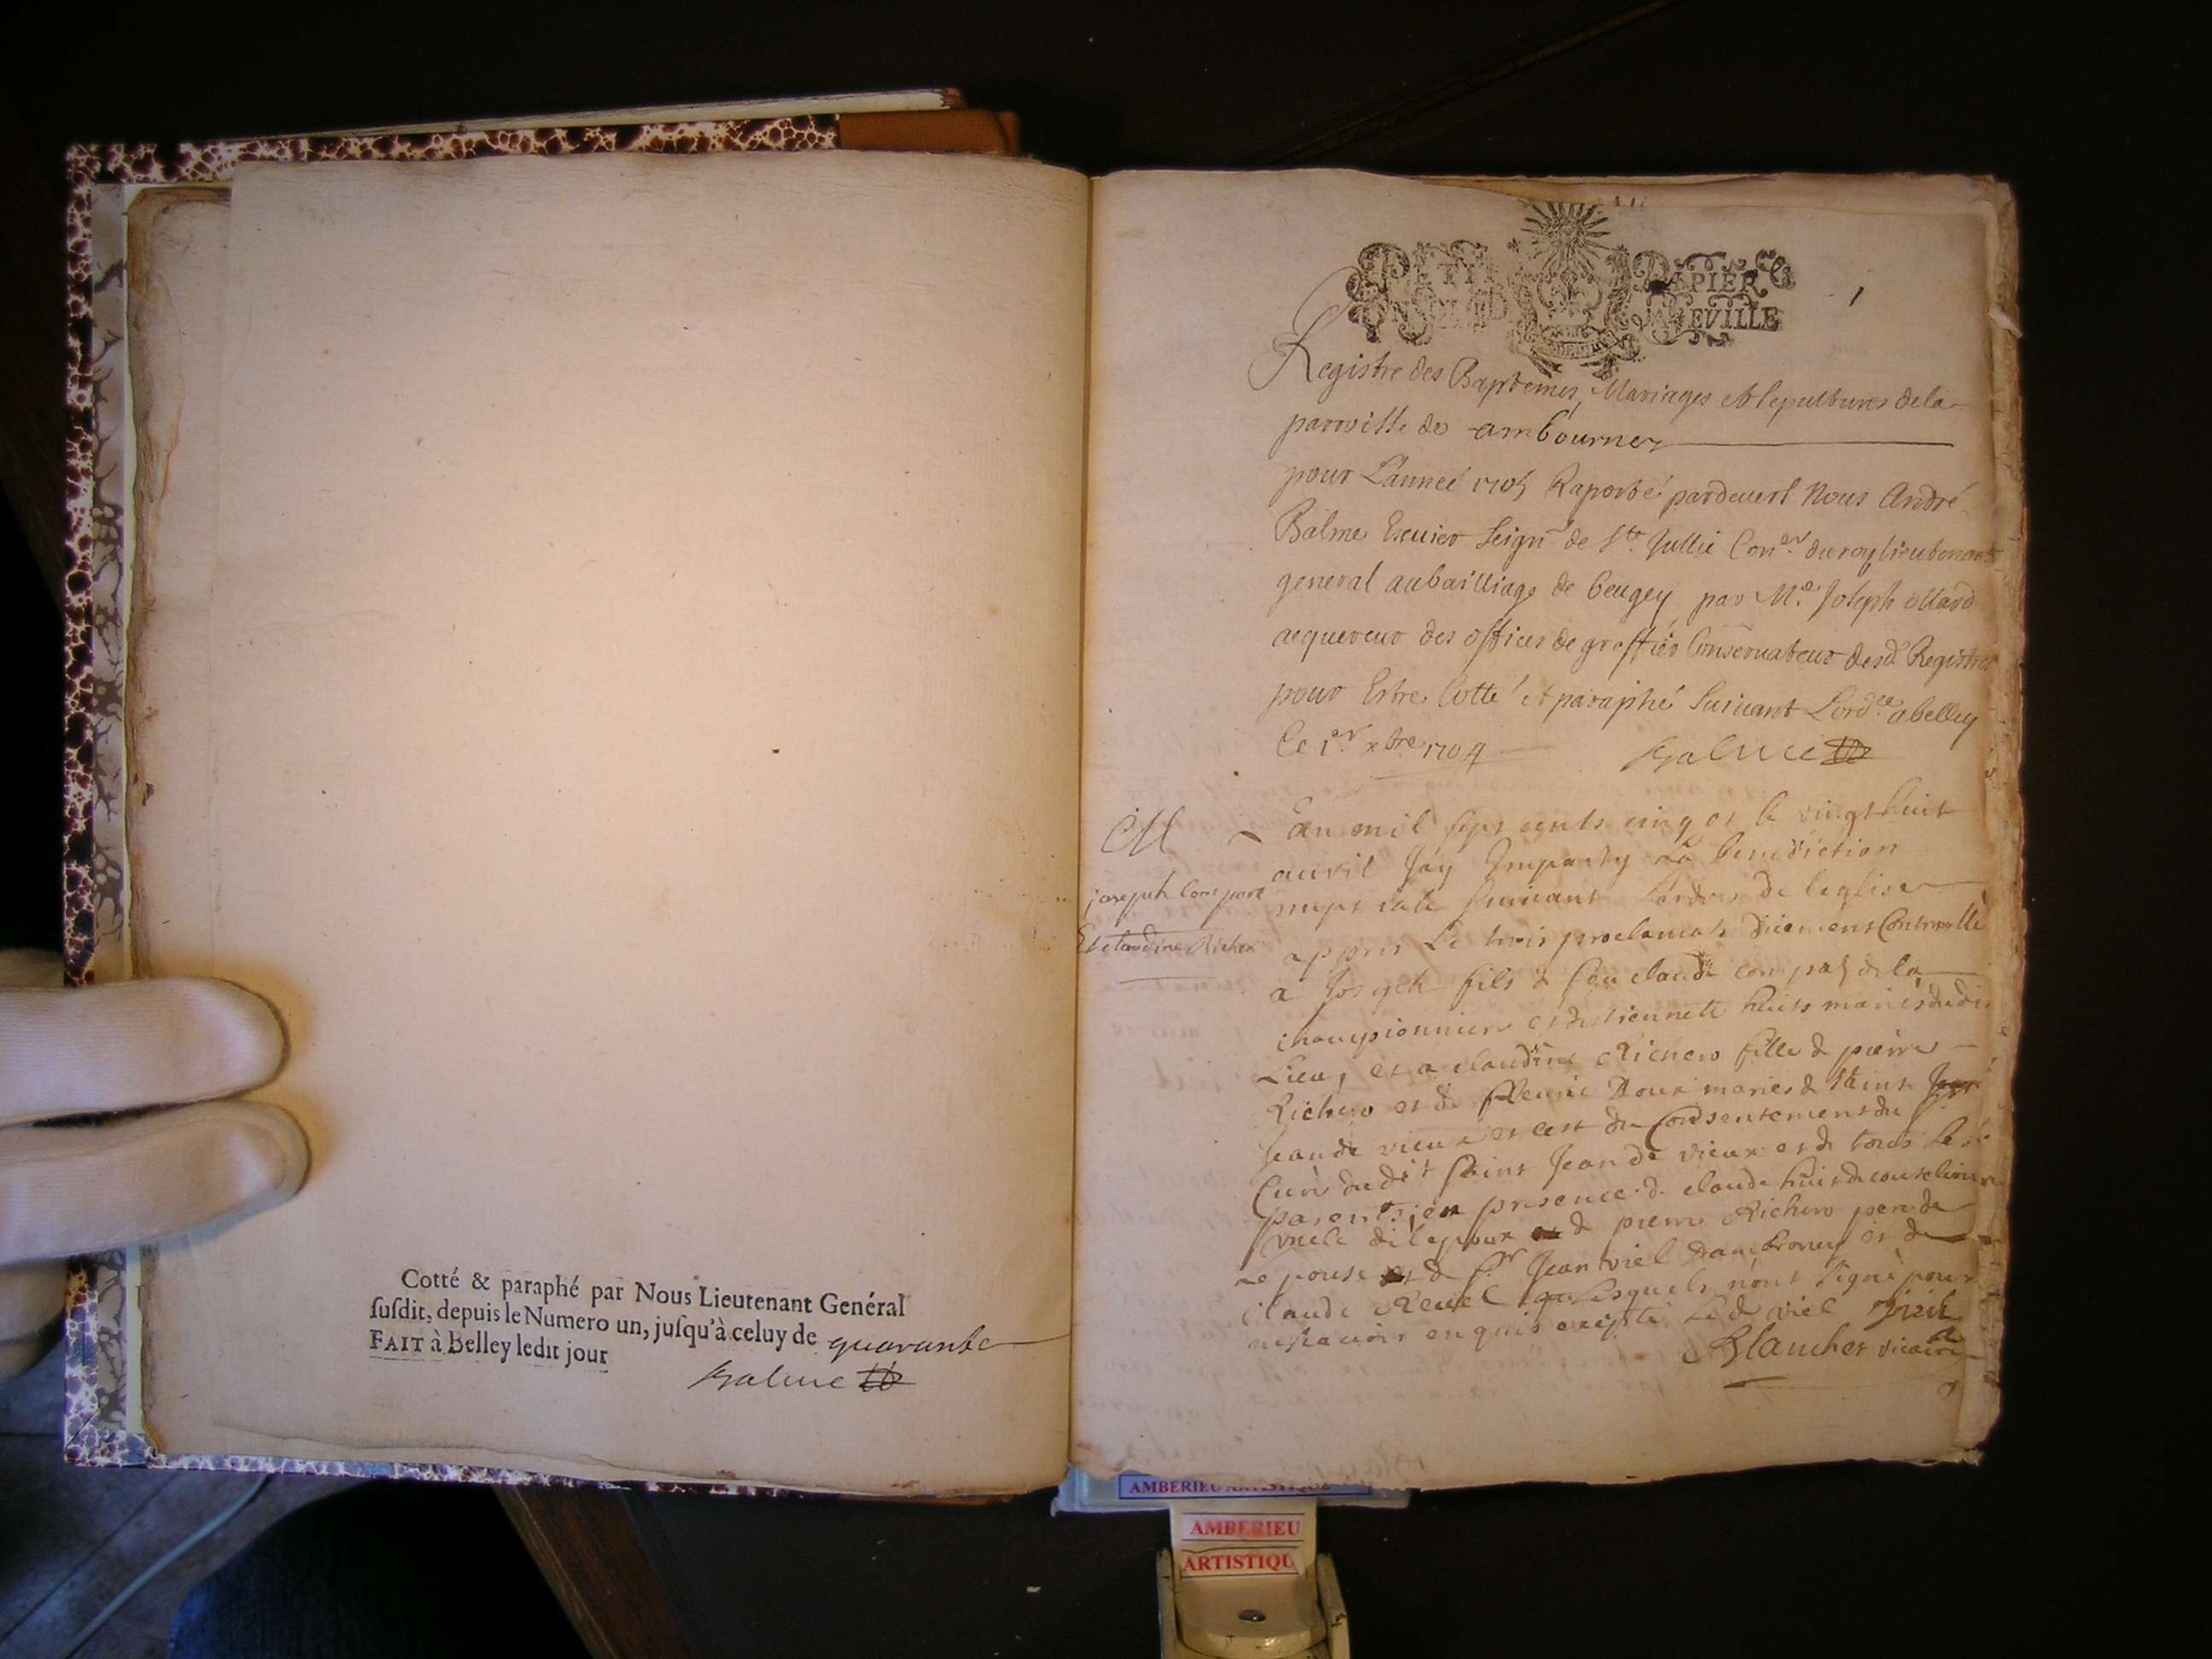 Cotté & paraphé par Nous Lieutenant Genéral
ſuſdit, depuis le Numero un, juſqu'à celuy de quarante
FAIT à Belley ledit jour
Balme
PETIT PAPIER
DEVILLE
1
Registre des Baptemes, Mariages et sepultures dela
parroisse de ambournez
pour L'année 1705 Raporté pardeuert Nous André
Balme Escuier seignr de Ste Jullie Coner du roy lieutenant
general au bailliage de beugey par Me Joseph
acquereur des offices de greffier Conseruateur desd Registres
pour Estre Cotté et paraphé suiuant Lordce a belley
Ce 1er xbre 1704 Balme
M
joseph Compare
Et claudine Richer
L'an mil sept cents cinq et le vingt huit
auvril Jay Imparty La benediction
nuptiale suiuant Lordre de leglise
appres Le trois proclamats duement Controllé
a Joseph fils de feu claude compas de la
championniere et destiennette huits mariés dudit
Lieu, et a claudine Richero fille de pierre
Richero et de fleurie Doux mariés de saint
Jean de vieux et cest du Consentement du
Curé dudit saint Jean de vieux et de tous les
parents, en presence de claude huit de
oncle de lepoux de pierre Richero pere de
le pouse et de sr Jean viel Dambronay et de
claude Reuel lesquels n'ont signé pour
ne scauoir enquis excepté Led viel viel
Blanchet vicaire
AMBERIEU ARTISTIQUE
AMBERIEU
ARTISTIQU